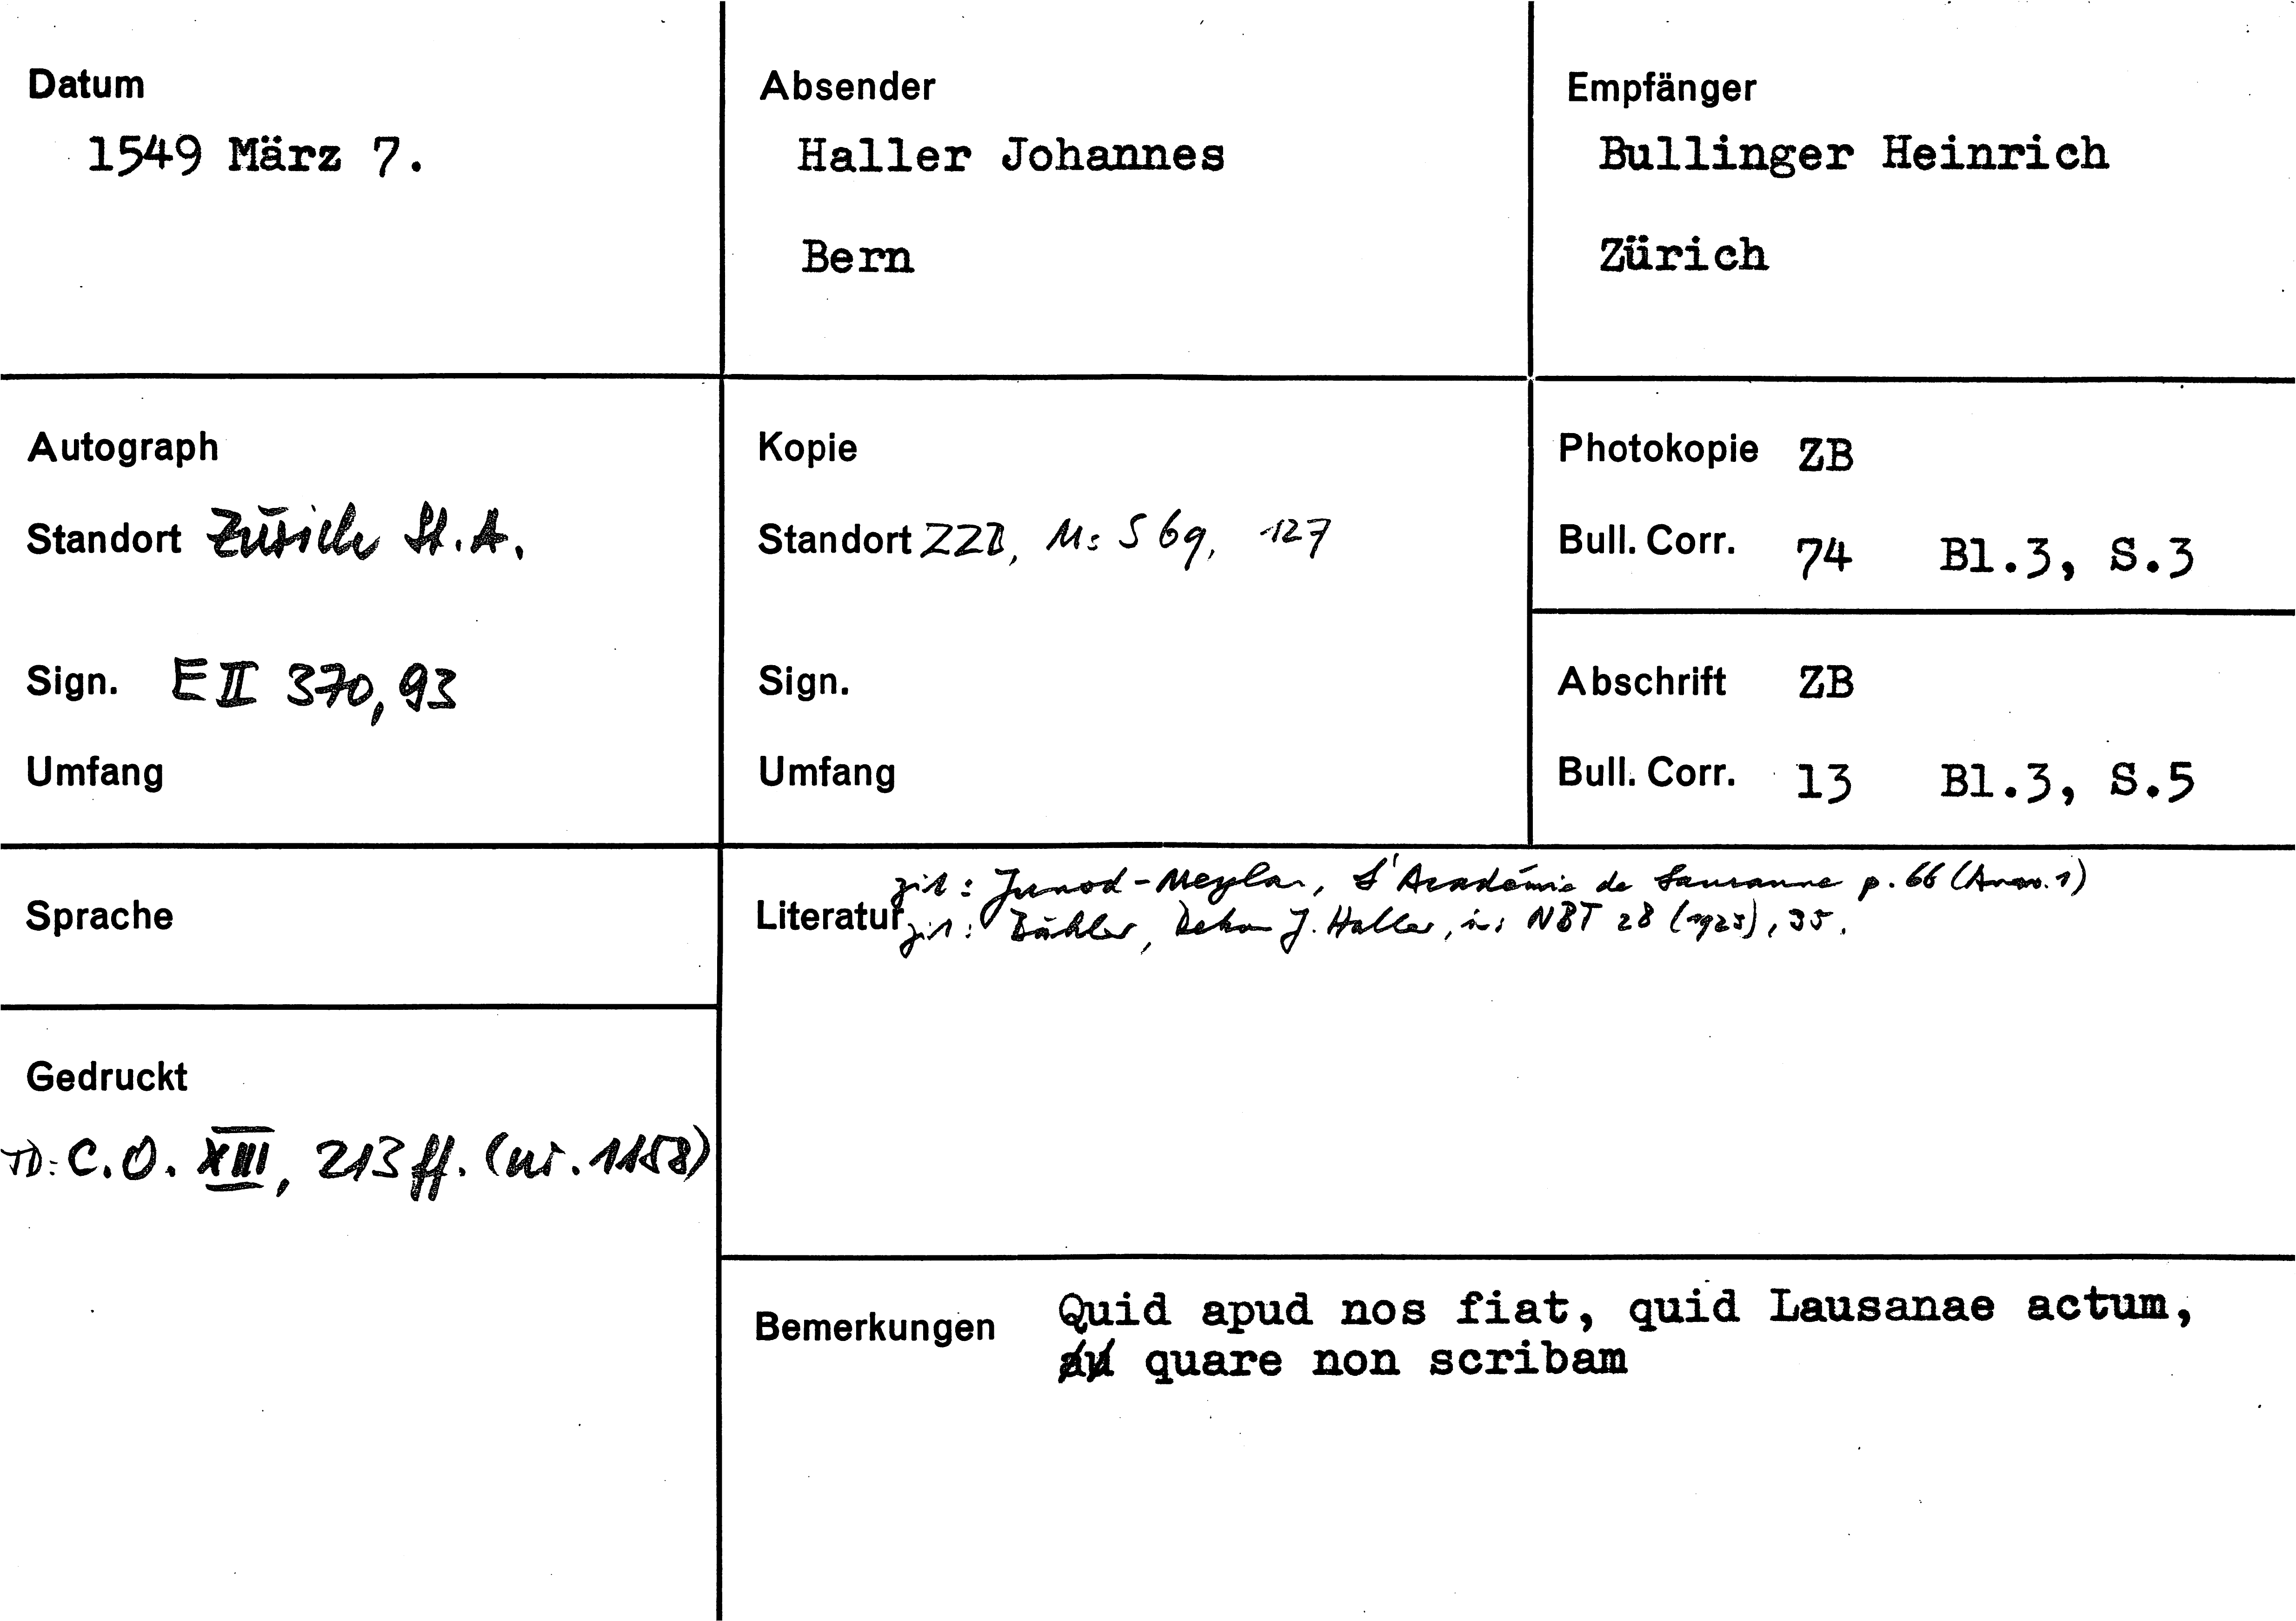 Datum
1549 März 7.
Absender
Haller Johannes
Bern
Empfänger
Bullinger Heinrich
Zürich
Autograph
Standort Zürich St.A.
Sign. E II 370,93
Umfang
Kopie
Standort ZZB, Ms S 69, 127
Sign.
Umfang
Photokopie ZB
Bull. Corr. 74 Bl.3, S.3
Abschrift ZB
Bull. Corr. 13 Bl.3, S.5
Sprache
Gedruckt
TD: C.O. XIII, 213 ff. (nr. 1158)
zit: Junod-Meylan, L'Académie de Lausanne p. 66 (Anm. 1)
Literatur zit: Bähler, Dekan J. Haller, in: NBT 28 (1925), 35.
Bemerkungen Quid apud nos fiat, quid Lausanae actum,
quare non scribam